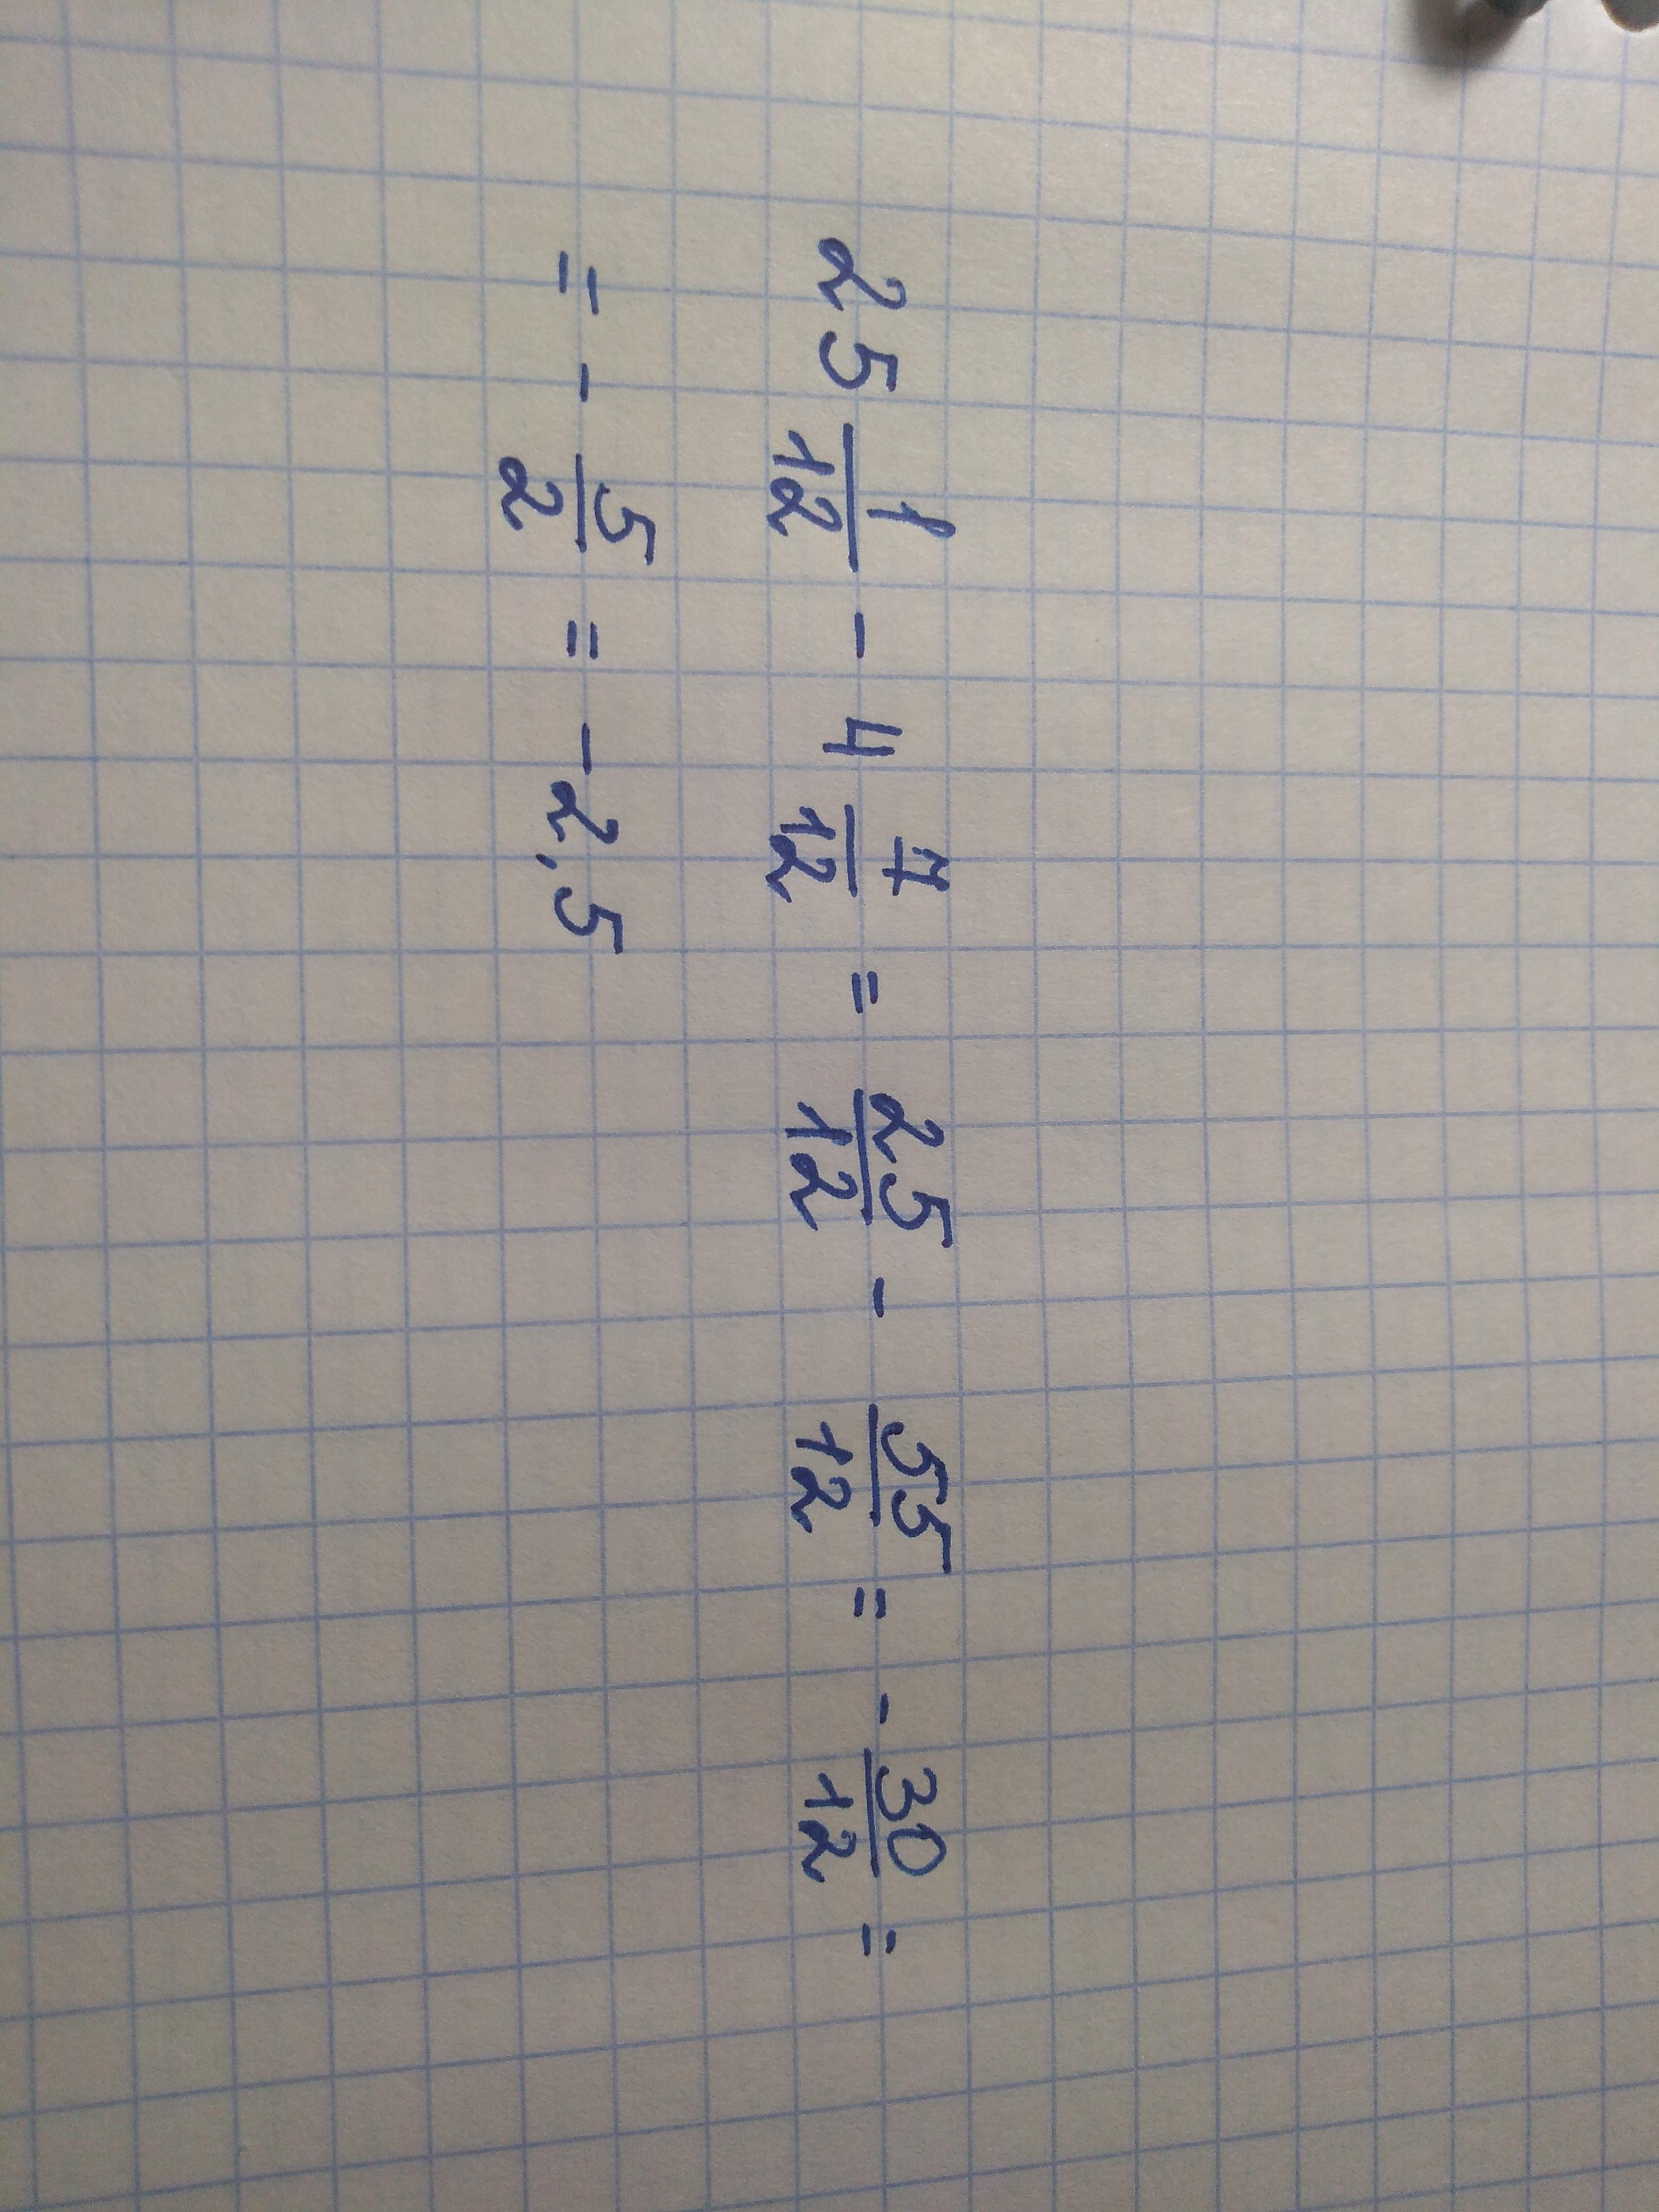 25 1/12 - 4 7/12 = 25/12 - 55/12 = - 30/12 =
= - 5/2 = -2,5